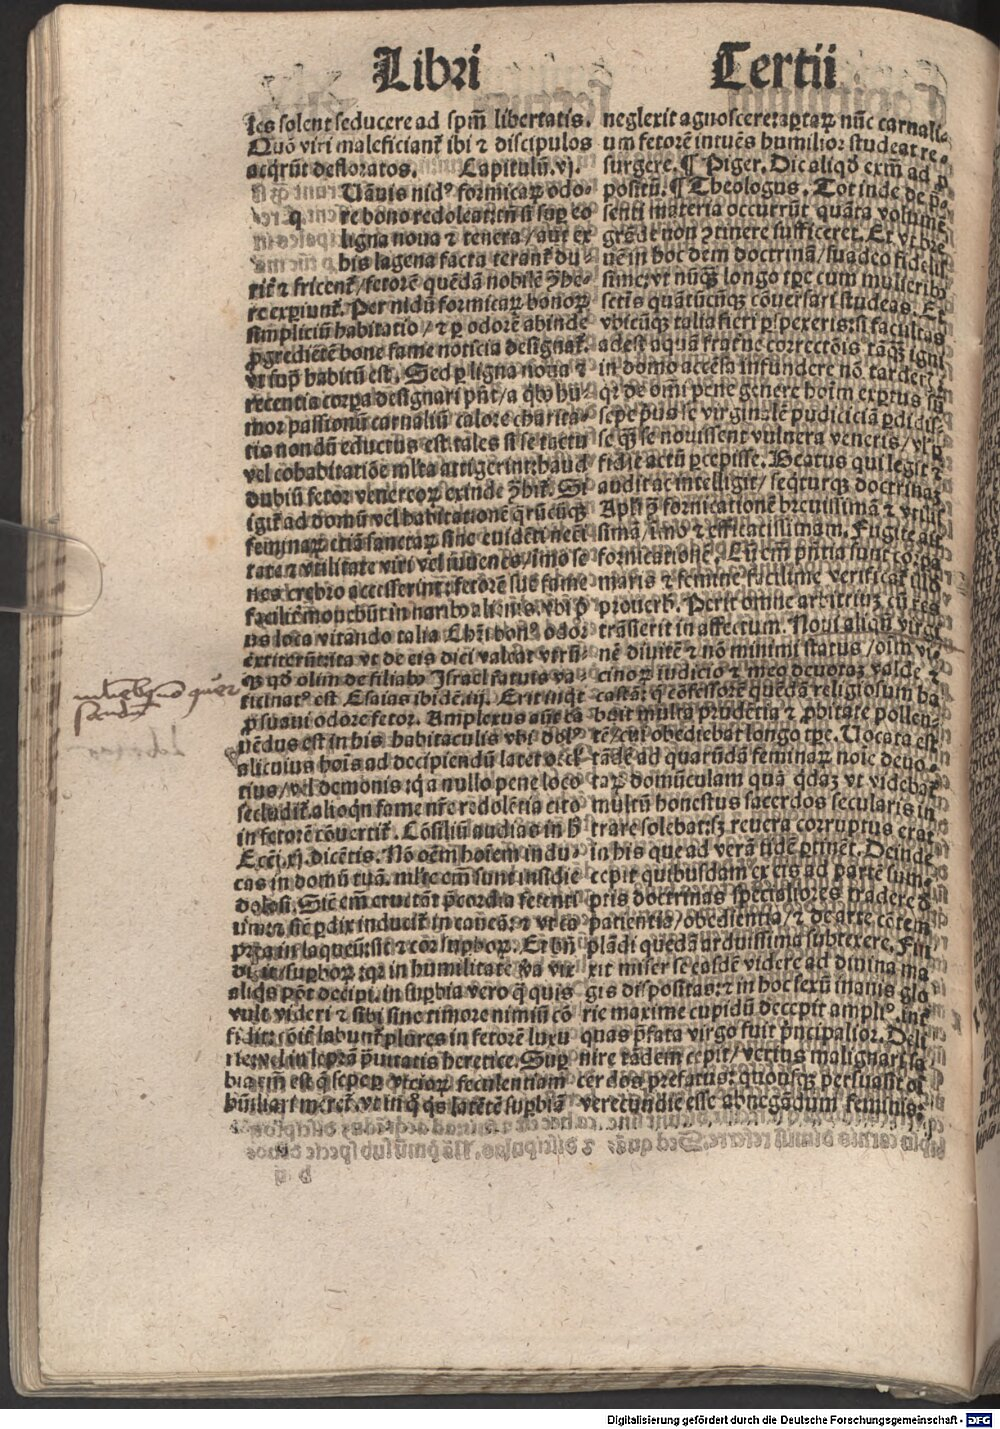 Libri Tertii
les solent seducere ad spm̃ libertatis.
Quõ viri maleficiant᷑ ibi ⁊ discipulos
acq̃rũt defloratos. Capitulũ. vj.
Uãuis nid⁹ formicaꝝ odo-
q re bono redoleat: tñ si suꝑ eo
ligna noua ⁊ tenera / aut ex
his lagena facta terant᷑ du-
rit᷑ ⁊ fricent᷑ / fetorẽ quẽdã nobilẽ p̃be-
re exꝑiunt᷑. Per nidũ formicaꝝ bonoꝝ
simpliciũ habitatio / ⁊ ꝑ odorẽ abinde
ꝓgrediẽtẽ bone fame noticia designat᷑.
vt sup̃ habitũ est. Sed ꝑ ligna noua ⁊
recentia corꝑa designari pñt / a q̃bꝰ hu-
mor passionũ carnaliũ calore charita-
tis nondũ eductus est. tales si se tactu
vel cohabitatiõe mlta attigerint: haud
dubiũ fetor venereoꝝ exinde p̃bit᷑. Si
igit᷑ ad domũ vel habitationẽ q̃rũcũqꝫ
feminaꝝ etiã sanctaꝝ sine euidẽti neci
tate ⁊ vtilitate viri vel iuuenes / imo se
nes crebro accesserint: fetorẽ sue fame
facilit᷑ mouebũt in naribꝰ alienis. vbi p̃
us loca vitando talia Chr̃i bon⁹ odor
extiterũt: ita vt de eis dici valeat virũ-
qꝫ qď olim de filiabꝰ Israel fatuis va-
ticinat⁹ est Esaias ibidẽ. iij. Erit inq̃t
ꝓ suaui odore fetor. Amplexus aũt ca
uẽdus est in his habitaculis vbi dol⁹
alicuius hoĩs ad decipiendũ latet occl
tius / vel demonis: q̃ a nullo pene loco
secludit᷑. alioqn fame nr̃e redolẽtia cito
in fetorẽ cõuertit᷑. Cõsiliũ audias in h̃
Ecci. xj. dicẽtis. Nõ oẽm hoĩem indu-
cas in domũ tuã. mlte em̃ sunt insidie
dolosi. Sic em̃ eructãt p̃cordia fetenti
um: ⁊ sic ꝑdix inducit᷑ in caueã: ⁊ vt ca
pra in laqueũ: sit ⁊ cor suꝑboꝝ. Et bñ
dixit / suꝑboꝝ: qꝛ in humilitate ṽa vix
aliq̃s põt decipi. in suꝑbia vero q̃ quis
vult videri ⁊ sibi sine timore nimiũ cõ
fidit: cõit᷑ labunt᷑ plures in fetorẽ luxu
rie: vel in leprã p̃uitatis heretice. Suꝑ
bia em̃ est q̃ seꝑeꝝ vicioꝝ feculentiam
hũiliari meret᷑. vt in q̃ q̃s latẽtẽ suꝑbiã
neglexit agnoscere: aꝑtaꝝ nũc carnaliũ
um fetorẽ intuẽs humilior studeat re-
surgere. ¶ Piger. Dic aliqď exm̃ ad ꝓ
positũ. ¶ Theologus. Tot inde de p̃-
senti materia occurrũt quãta volumẽ
grãde non ꝯtinere sufficeret. Et vt bre
uẽ in hoc dem doctrinã / suadeo fidelis
sime: vt nũq̃ longo tꝑe cum mulieribꝰ
setis quãtũcũqꝫ cõuersari studeas. Et
vbicũqꝫ talia fieri ꝑspexeris: si facultas
adest aquã frat᷑ne correctõis tãqꝫ igni
in domo accẽsa infundere nõ tardes:
qꝛ de om̃i pene genere hoĩm exꝑtus sũ
sepe p̃us se virginalẽ pudiciciã ꝑdidis-
se q̃ se nouissent vulnera veneris / vl ꝑ
fidie actũ ꝑcepisse. Beatus qui legit ⁊
audit ac intelligit / seqt᷑urqꝫ doctrinaꝫ
Apl̃i ꝯ̃ fornicationẽ breuissimã ⁊ vtilis
simã / imo ⁊ efficacissimam. Fugite ait
fornicationẽ. Cũ em̃ p̃ntia sunt corpa
maris ⁊ femine facilime verificat᷑ illd
prouerb. Perit omne arbitriuꝫ cũ res
trãsierit in affectum. Noui aliqũ virgi
nẽ diuitẽ ⁊ nõ minimi status / oĩm vi-
cinoꝝ iudicio ⁊ meo deuotaꝫ valde ⁊
castã: q̃ cõfessorẽ quẽdã religiosum ha
buit multa prudẽtia ⁊ ꝓbitate pollen-
tẽ / cui obediebat longo tꝑe. Uocata est
tãdẽ ad quarũdã feminaꝝ noĩe deuo-
taꝝ domũculam quã q̃daꝫ vt videbat᷑
multũ honestus sacerdos secularis in
trare solebat: sꝫ reuera corruptus erat
in his que ad verã fidẽ ꝑtinẽt. Deinde
cepit quibusdam ex eis ad partẽ sum-
ptis doctrinas specialiores tradere d̃
patientia / obedientia / ⁊ de arte cõtem
plãdi quedã arduissima subtexere. Fin
xit miser se easdẽ videre ad diuina ma
gis dispositas: ⁊ in hoc sexũ inanis glo
rie maxime cupidũ decepit ampli⁹. Int᷑
quas p̃fata virgo fuit p̃ncipalior. Deli
nire tãdem cepit / verius malignari sa
cerdos prefatus: quousqꝫ persuasit ei
verecundie esse abnegãdum feminis:
Digitalisierung gefördert durch die Deutsche Forschungsgemeinschaft - DFG